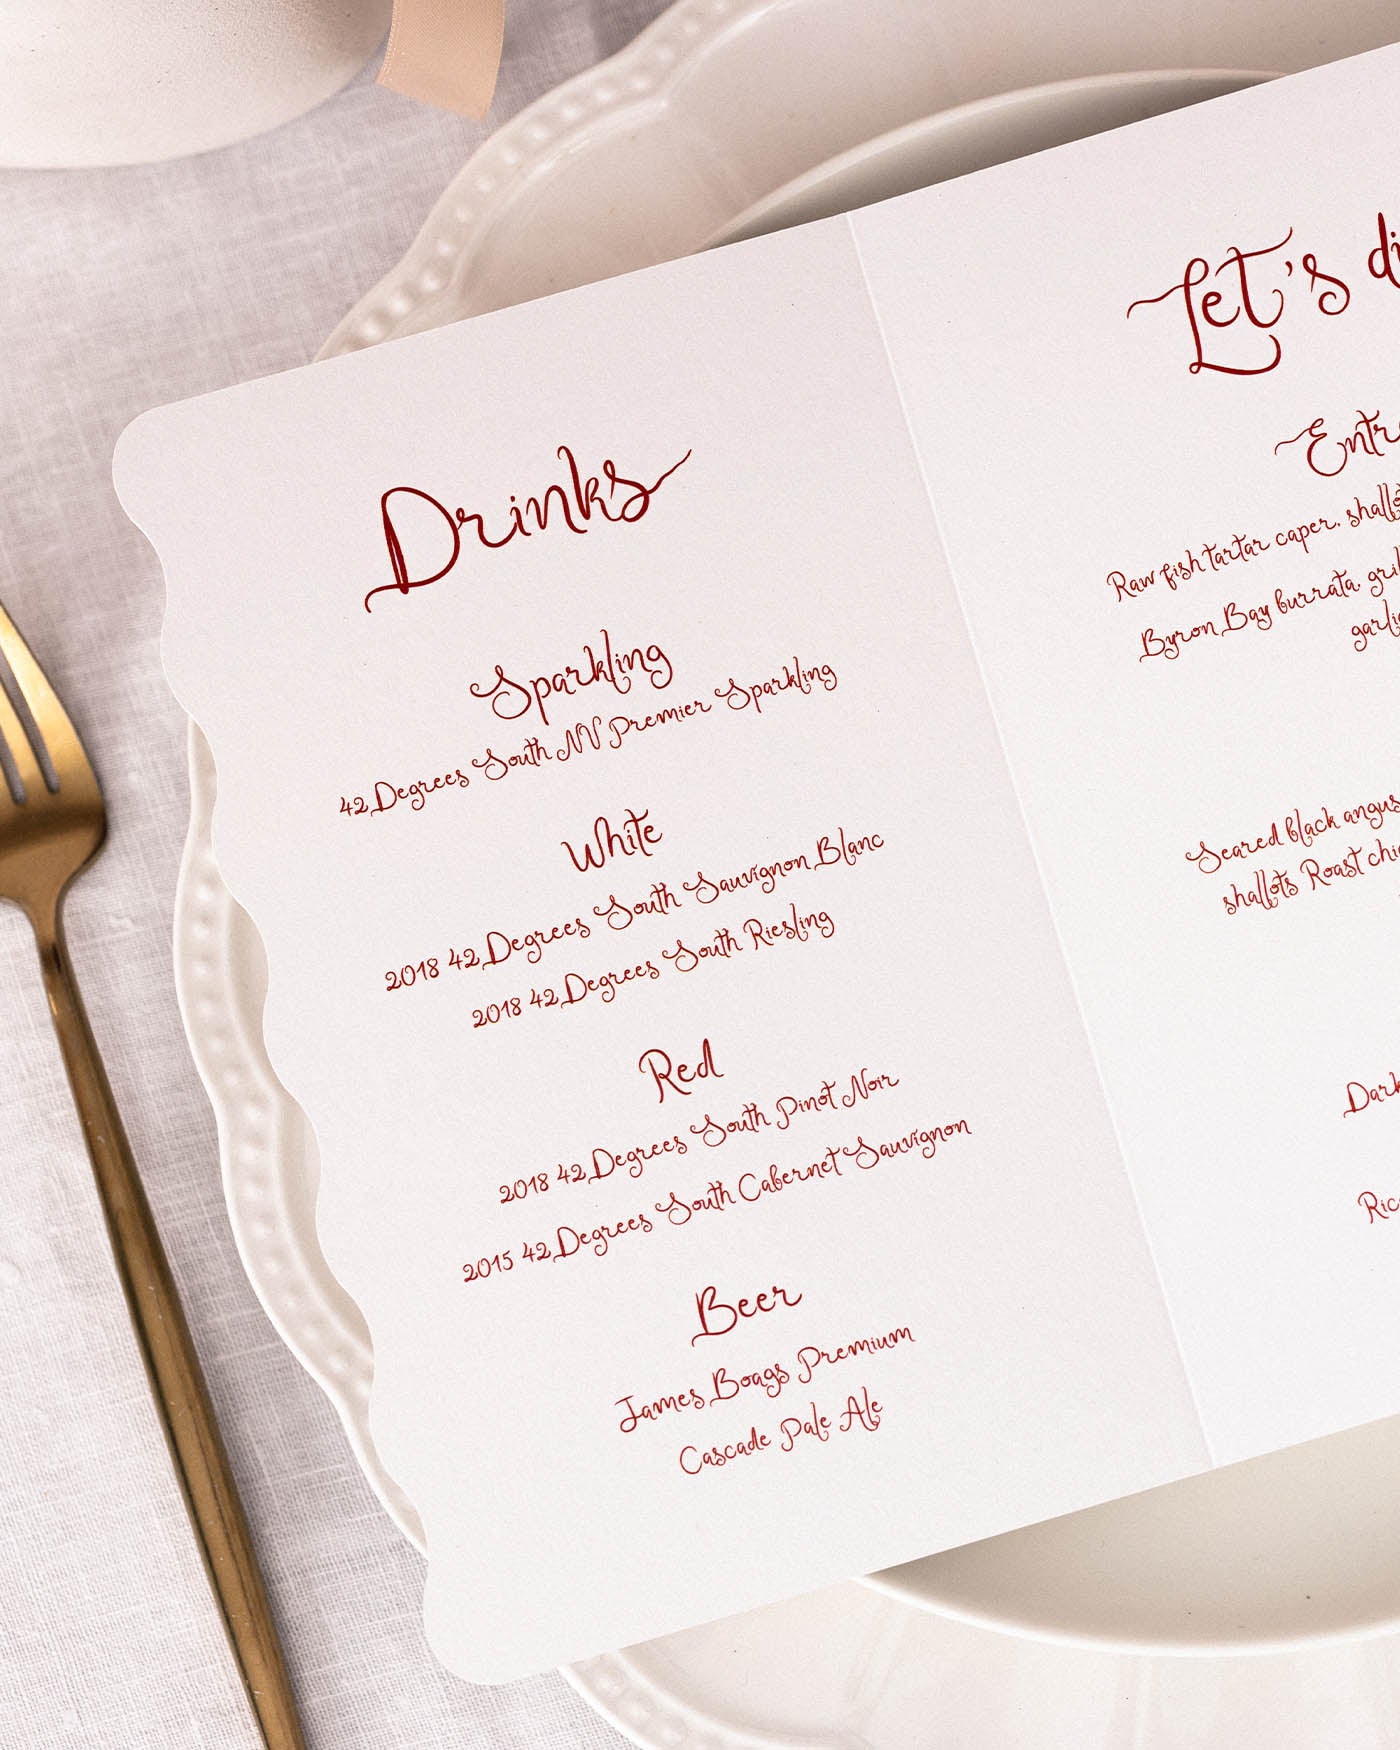 Drinks
Sparkling
42 Degrees South NV Premier Sparkling
White
2018 42 Degrees South Sauvignon Blanc
2018 42 Degrees South Riesling
Red
2018 42 Degrees South Pinot Noir
2015 42 Degrees South Cabernet Sauvignon
Beer
James Boags Premium
Cascade Pale Ale
Let's
Raw fish tartar caper, 
Byron Bay burrata,
Seared black
shallots Roast